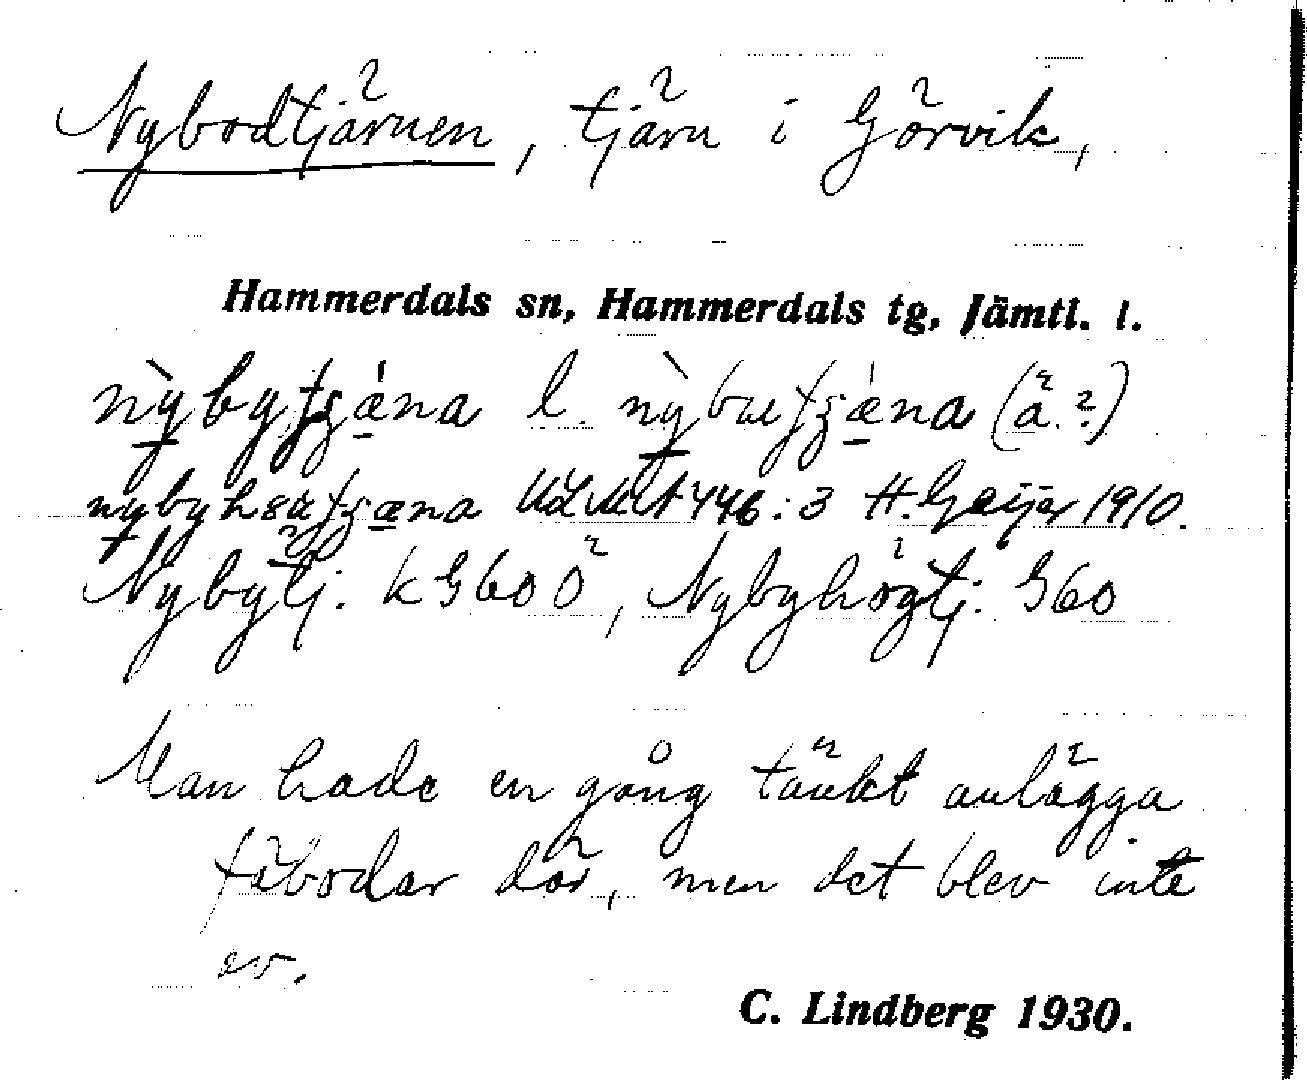 Nybodtjärnen, tjärn i Görvik,
Hammerdals sn, Hammerdals tg, Jämtl. l.
l. (ä ?)
ULMA 446:3 H. Geijer 1910.
Nybytj. k G60 Ö, Nybyhögtj. G60
Man hade en gång tänkt anlägga
fäbodar där, men det blev inte
av.
C. Lindberg 1930.